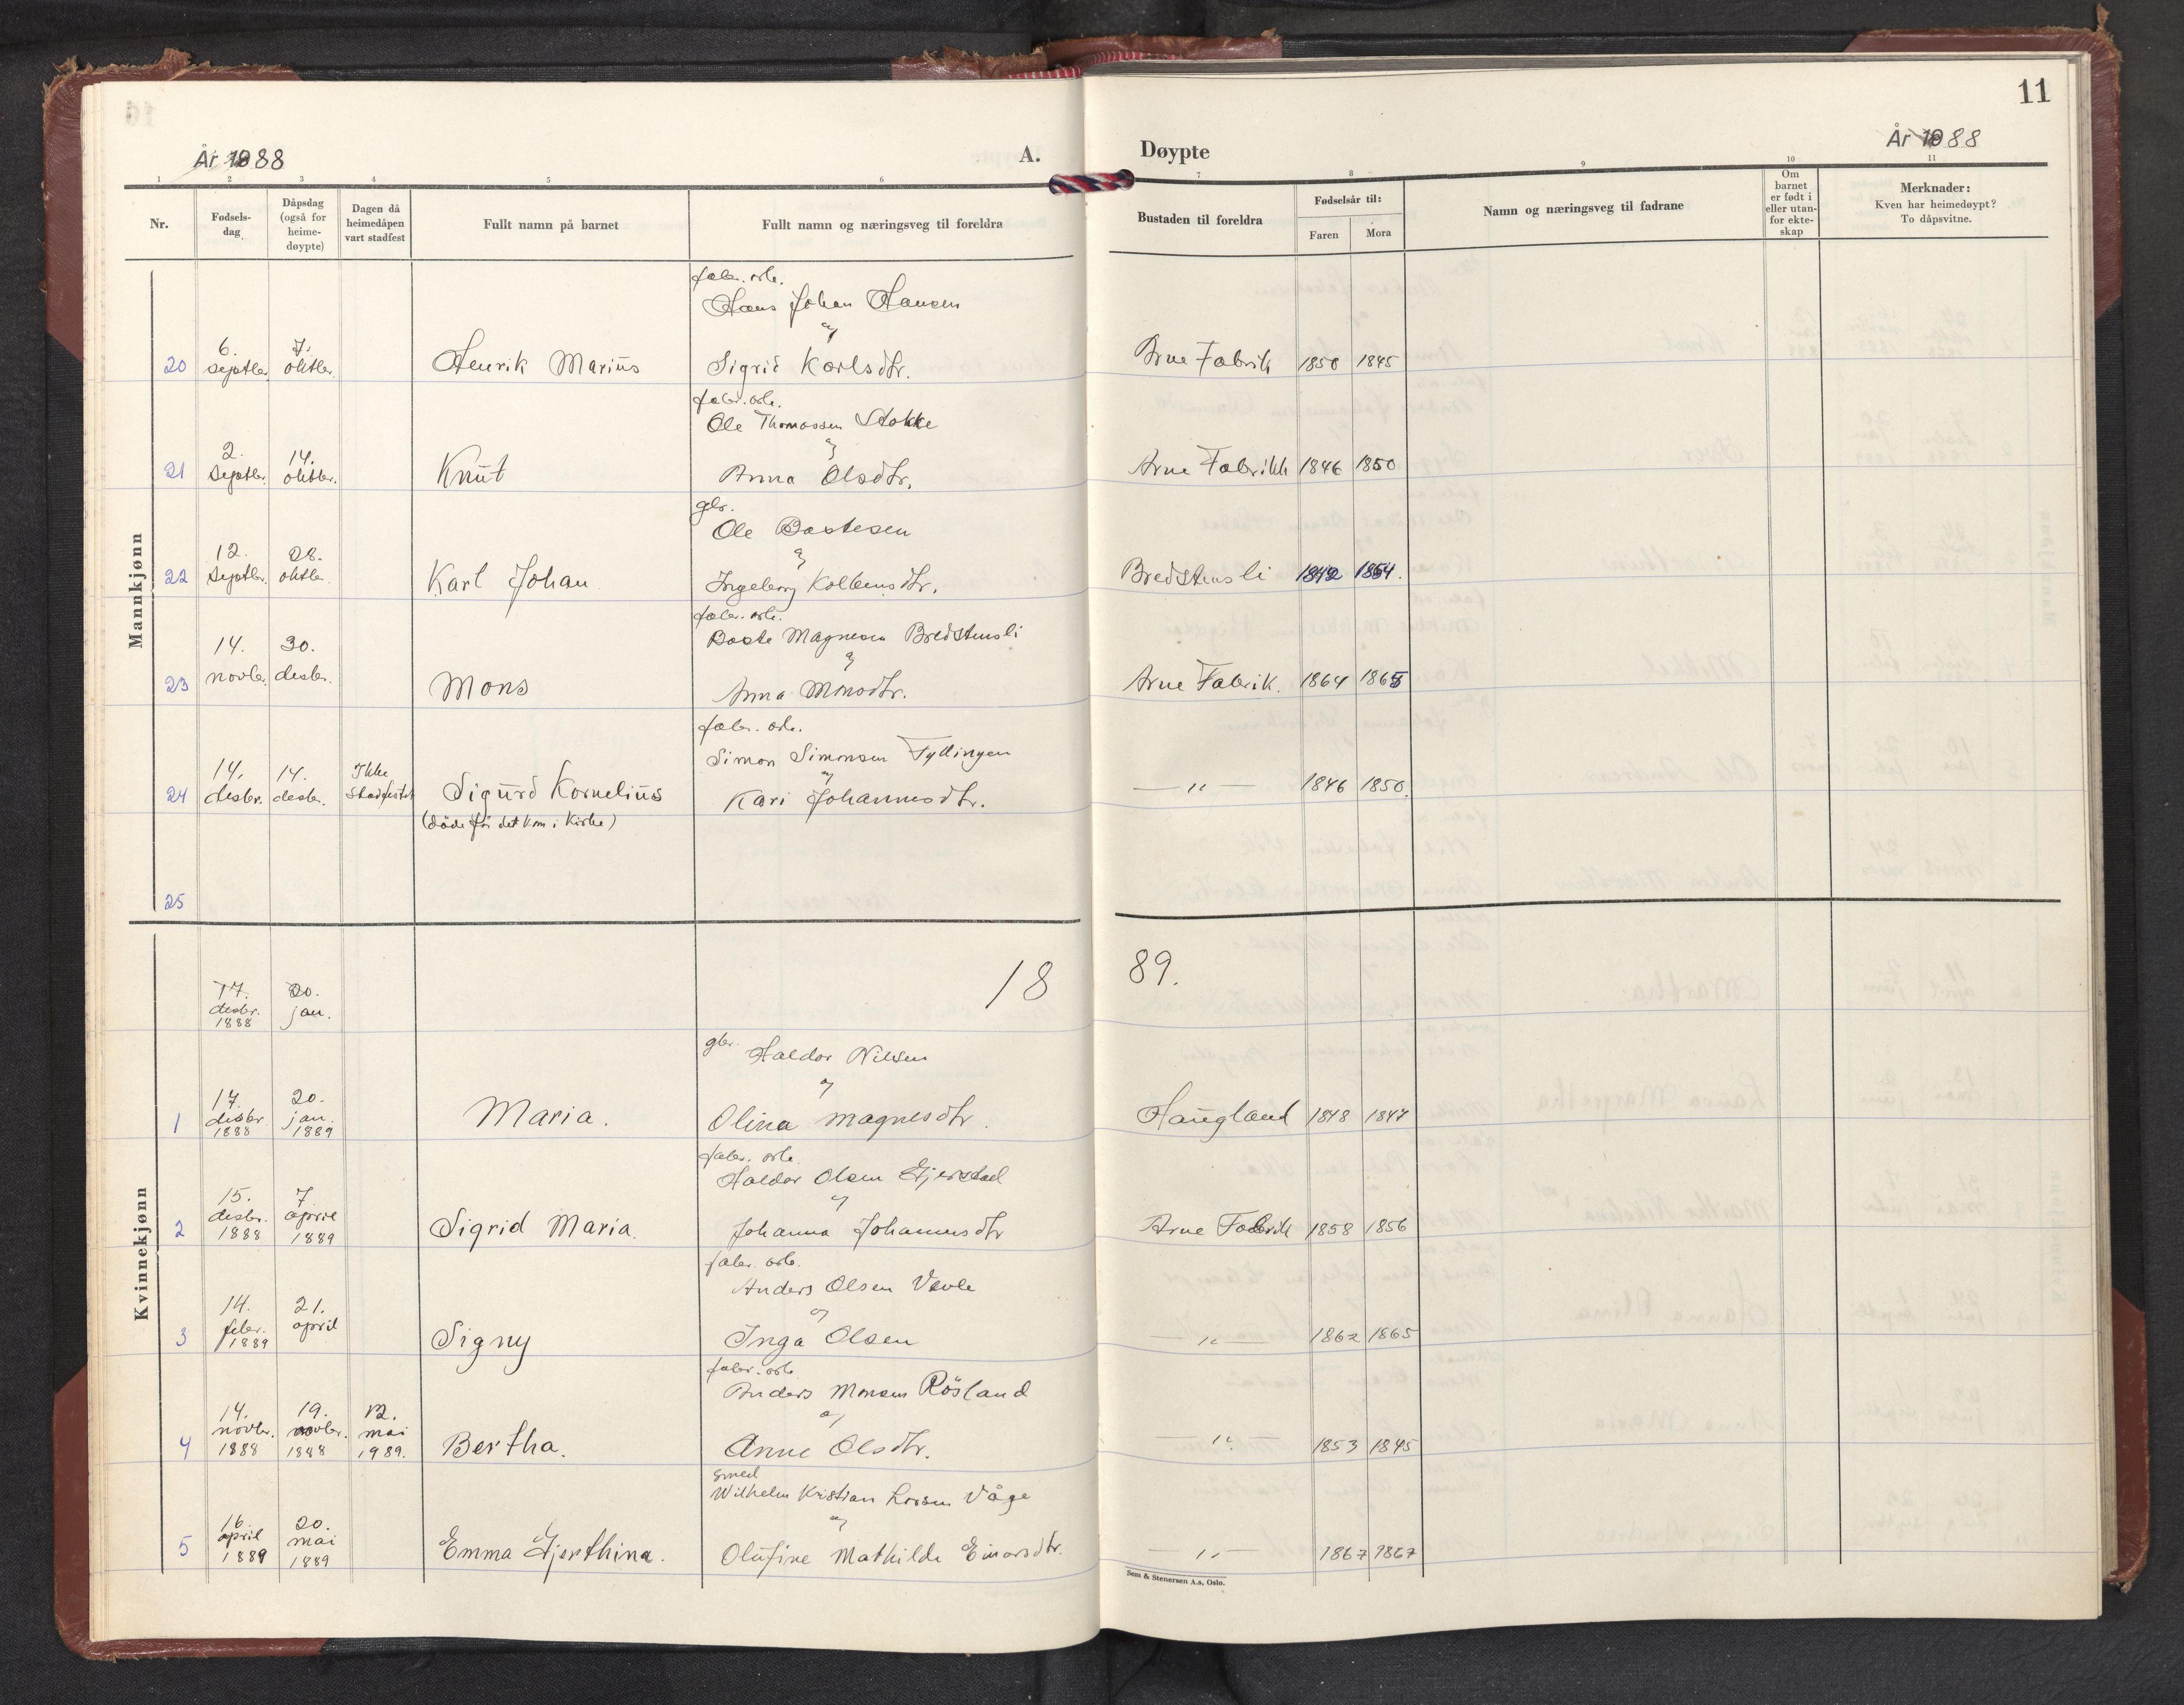 11
År 1888
A.
Døypte
År 1888
1 2 3 4 5 6 7 8 9 10 11
Nr.
Fødsels-
dag
Dåpsdag
(også for
heime-
døypte)
Dagen då
heimedåpen
vart stadfest
Fullt namn på barnet
Fullt namn og næringsveg til foreldra
Bustaden til foreldra
Fødselsår til:
Faren Mora
Namn og næringsveg til fadrane
Om
barnet
er født i
eller utan-
for ekte-
skap
Merknader:
Kven har heimedøypt?
To dåpsvitne.
Mannkjønn
fabr. arb.
Hans Johan Hansen
og
20 6. septbr. 7. oktbr. Henrik Marius Sigrid Karlsdtr. Arne Fabrik 1850 1845
fabr. arb.
Ole Thomassen Stokke
og
21 2. septbr. 14. oktbr. Knut Anna Olsdtr. Arne Fabrikk 1846 1850
gbr.
Ole Bastesen
og
22 12. septbr. 28. oktbr. Karl Johan Ingeborg Kolbensdtr. Bredstensli 1842 1854.
fabr. arb.
Baste Magnesen Bredstensli
og
23 14. novbr. 30. desbr. Mons Anna Monsdtr. Arne Fabrik. 1864 1865
fabr. arb.
Simon Simonsen Fyllingen
og
24 14. desbr. 14. desbr. Ikke stadfestet Sigurd Kornelius Kari Johannesdtr. — " — 1846 1850.
(döde för det kom i Kirke)
25
1889.
17. desbr. 1888 20. jan.
Kvinnekjønn
gbr. Haldor Nilsen
og
1 17. desbr 1888 20. jan. 1889 Maria. Olina Magnesdtr. Haugland 1848 1847
fabr. arb.
Haldor Olsen Gjerstad
og
2 15. desbr. 1888 7 april 1889 Sigrid Maria. Johanna Johannesdtr Arne Fabrik 1858 1856
fabr. arb.
Anders Olsen Vevle
og
3 14. febr. 1889 21. april Signy Inga Olsen " — 1862 1865
fabr. arb.
Anders Monsen Rösland
og
4 14. novbr. 1888 19. novbr. 1888 12. mai 1989. Bertha. Anne Olsdtr. — " — 1853 1845
smed
Wilhelm Kristian Larsen Våge
og
5 16. april 1889 20. mai 1889 Emma Gjerthina. Olufine Mathilde Einarsdtr. — " — 1867 1867
Sem & Stenersen A.s, Oslo.